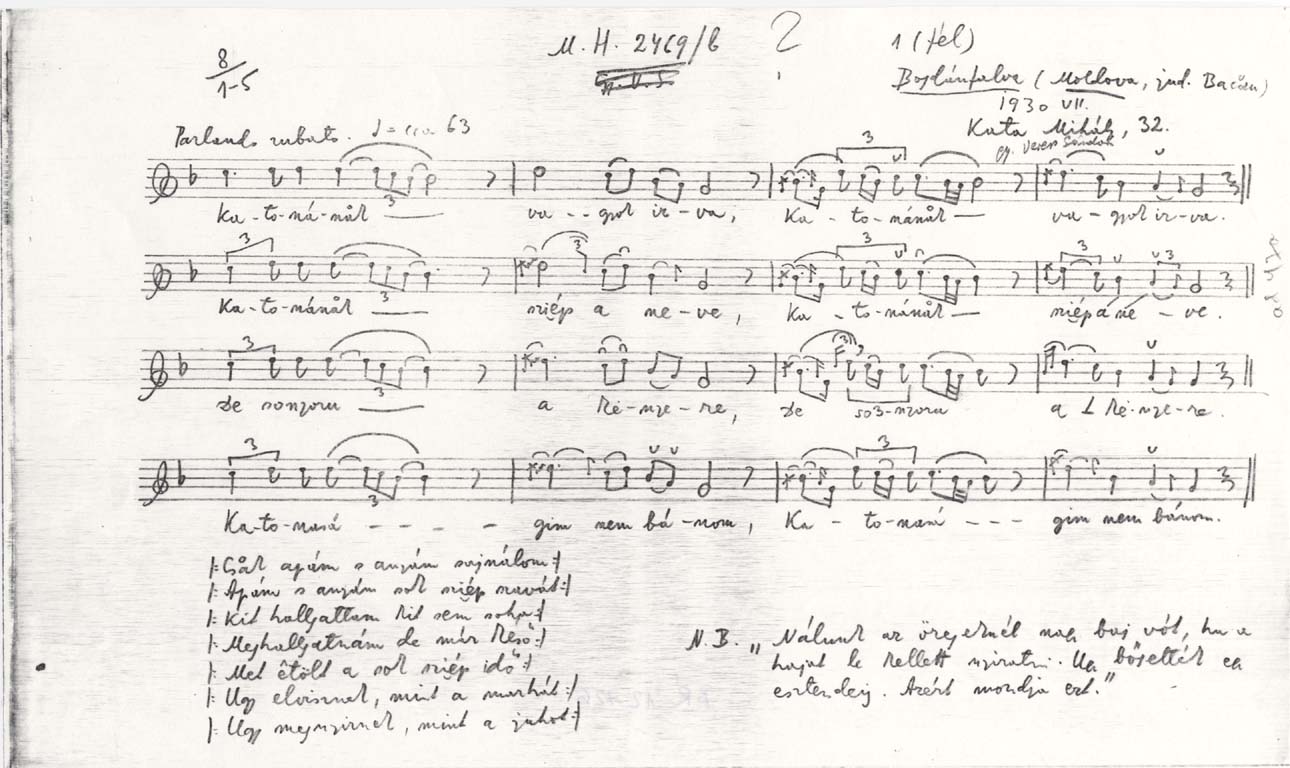 M. H. 2469/b ?
8/1-5
1 (fél)
Bogdánfalva (Moldova, jud. Bacău)
1930 VII.
Kata Mihály, 32.
gy. Veress Sándor
Parlando rubato. ♩ = cca 63
Ka-to-ná-nåk va--gyok ir-va, Ka-to-nánåk va-gyok ir-va.
Ka-to-nánåk sziép a ne-ve, Ka-to-nánåk sziép á né-ve.
De sonyoru a ké-nye-re, De soз-nyoru a ké-nye-re.
Ka-to-nasá - - - - gim nem bá-nom, Ka-to-nasá --- gim nem bánom.
|: Csåk apám s anyám sajnálom :|
|: Apám s anyám sok sziép szavát :|
|: Kit hallgattam kit sem soha :|
|: Meghallgatnám de már késő :|
|: Met êtölt a sok sziép idő :|
|: Ugy elvisznek, mint a marhát :|
|: Ugy megnyirnek, mint a juhot :|
N.B. „Nálunk az öregeknél nagy baj vót, ha a
haját le kellett nyiratni. Ua bőgették ea
esztendeig. Azért mondja ezt."